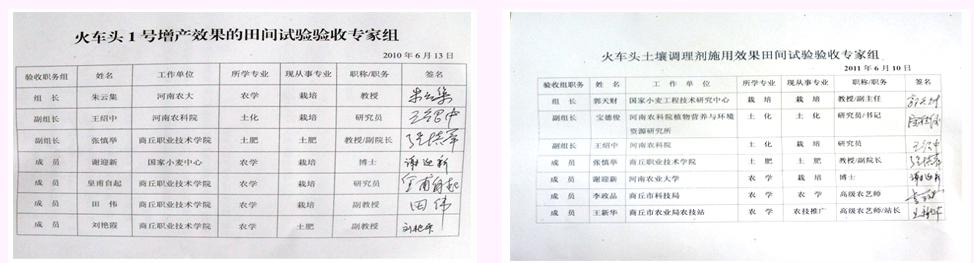 火车头1号增产效果的田间试验验收专家组
2010年6月13日
验收职务组 姓名 工作单位 所学专业 现从事专业 职称/职务 签名
组 长 朱云集 河南农大 农学 栽培 教授 朱云集
副组长 王绍中 河南农科院 土化 栽培 研究员 王绍中
副组长 张慎举 商丘职业技术学院 土肥 土肥 教授/副院长 张慎举
成 员 谢迎新 国家小麦中心 农学 栽培 博士 谢迎新
成 员 皇甫自起 商丘职业技术学院 农学 栽培 研究员 皇甫自起
成 员 田 伟 商丘职业技术学院 农学 栽培 副教授 田伟
成 员 刘艳霞 商丘职业技术学院 农学 土肥 副教授
火车头土壤调理剂施用效果田间试验验收专家组
2011年6月10日
验收组职务 姓 名 工作单位 所学专业 现从事专业 职称/职务 签名
组 长 郭天财 国家小麦工程技术研究中心 栽 培 栽 培 教授/副主任
副组长 宝德俊 河南农科院植物营养与环境 土 化 土 化 研究员/书记
资源研究所
副组长 王绍中 河南农科院 土 化 栽 培 研究员
成 员 张慎举 商丘职业技术学院 土 肥 土 肥 教授/副院长 张慎举
成 员 谢迎新 河南农业大学 农 学 栽 培 博士 谢迎新
成 员 李政品 商丘市科技局 农 学 农 学 高级农艺师
成 员 王新华 商丘市农业局农技站 农 学 农技推广 高级农艺师/站长